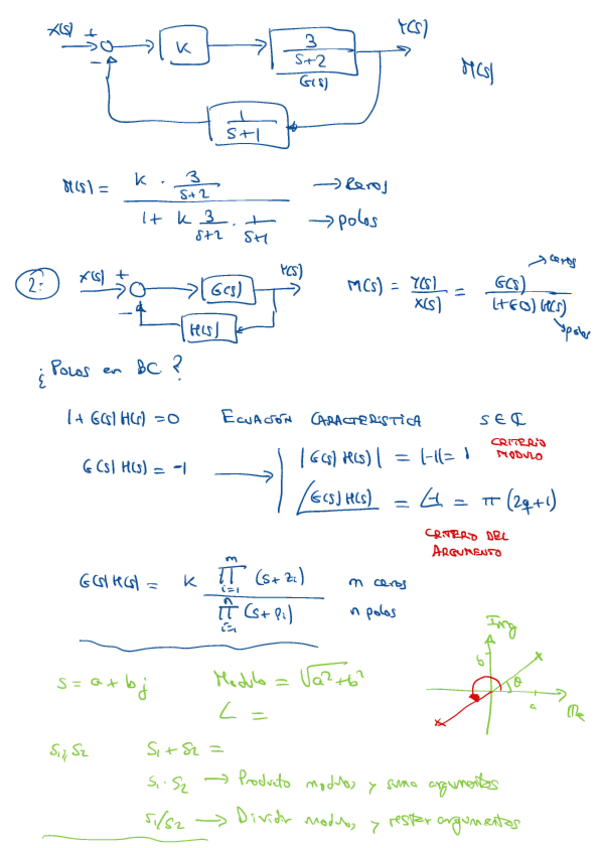 X(s) + Y(s)
- K 3/(s+2) M(s)
G(s)
1/(s+1)
M(s) = (K · 3/(s+2)) / (1 + K 3/(s+2) · 1/(s+1)) → ceros → polos
2: X(s) + - G(s) Y(s) H(s) M(s) = Y(s)/X(s) = G(s)/(1+G(s)H(s)) → ceros → polos
¿Polos en BC?
1+G(s)H(s)=0 ECUACIÓN CARACTERÍSTICA s∈ℂ
G(s)H(s) = -1 → |G(s)H(s)| = |-1| = 1 CRITERIO MODULO
∠G(s)H(s) = ∠-1 = π(2q+1)
CRITERIO DEL ARGUMENTO
G(s)H(s) = K ∏_{i=1}^{m} (s+zi) / ∏_{i=1}^{n} (s+pi) m ceros n polos
Img
b θ a Re
s = a + bj Modulo = √(a²+b²)
∠ =
s1, s2 s1 + s2 =
s1 · s2 → Producto modulos y suma argumentos
s1/s2 → Dividir modulos, y restar argumentos